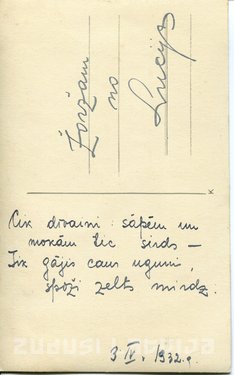 Žoržam
no
Lucijas
Cik dīvaini: sāpēm un
mokām tic sirds —
Tik gājis caur uguni,
spoži zelts mirdz.
3 IV. 1932.g.
zudusi